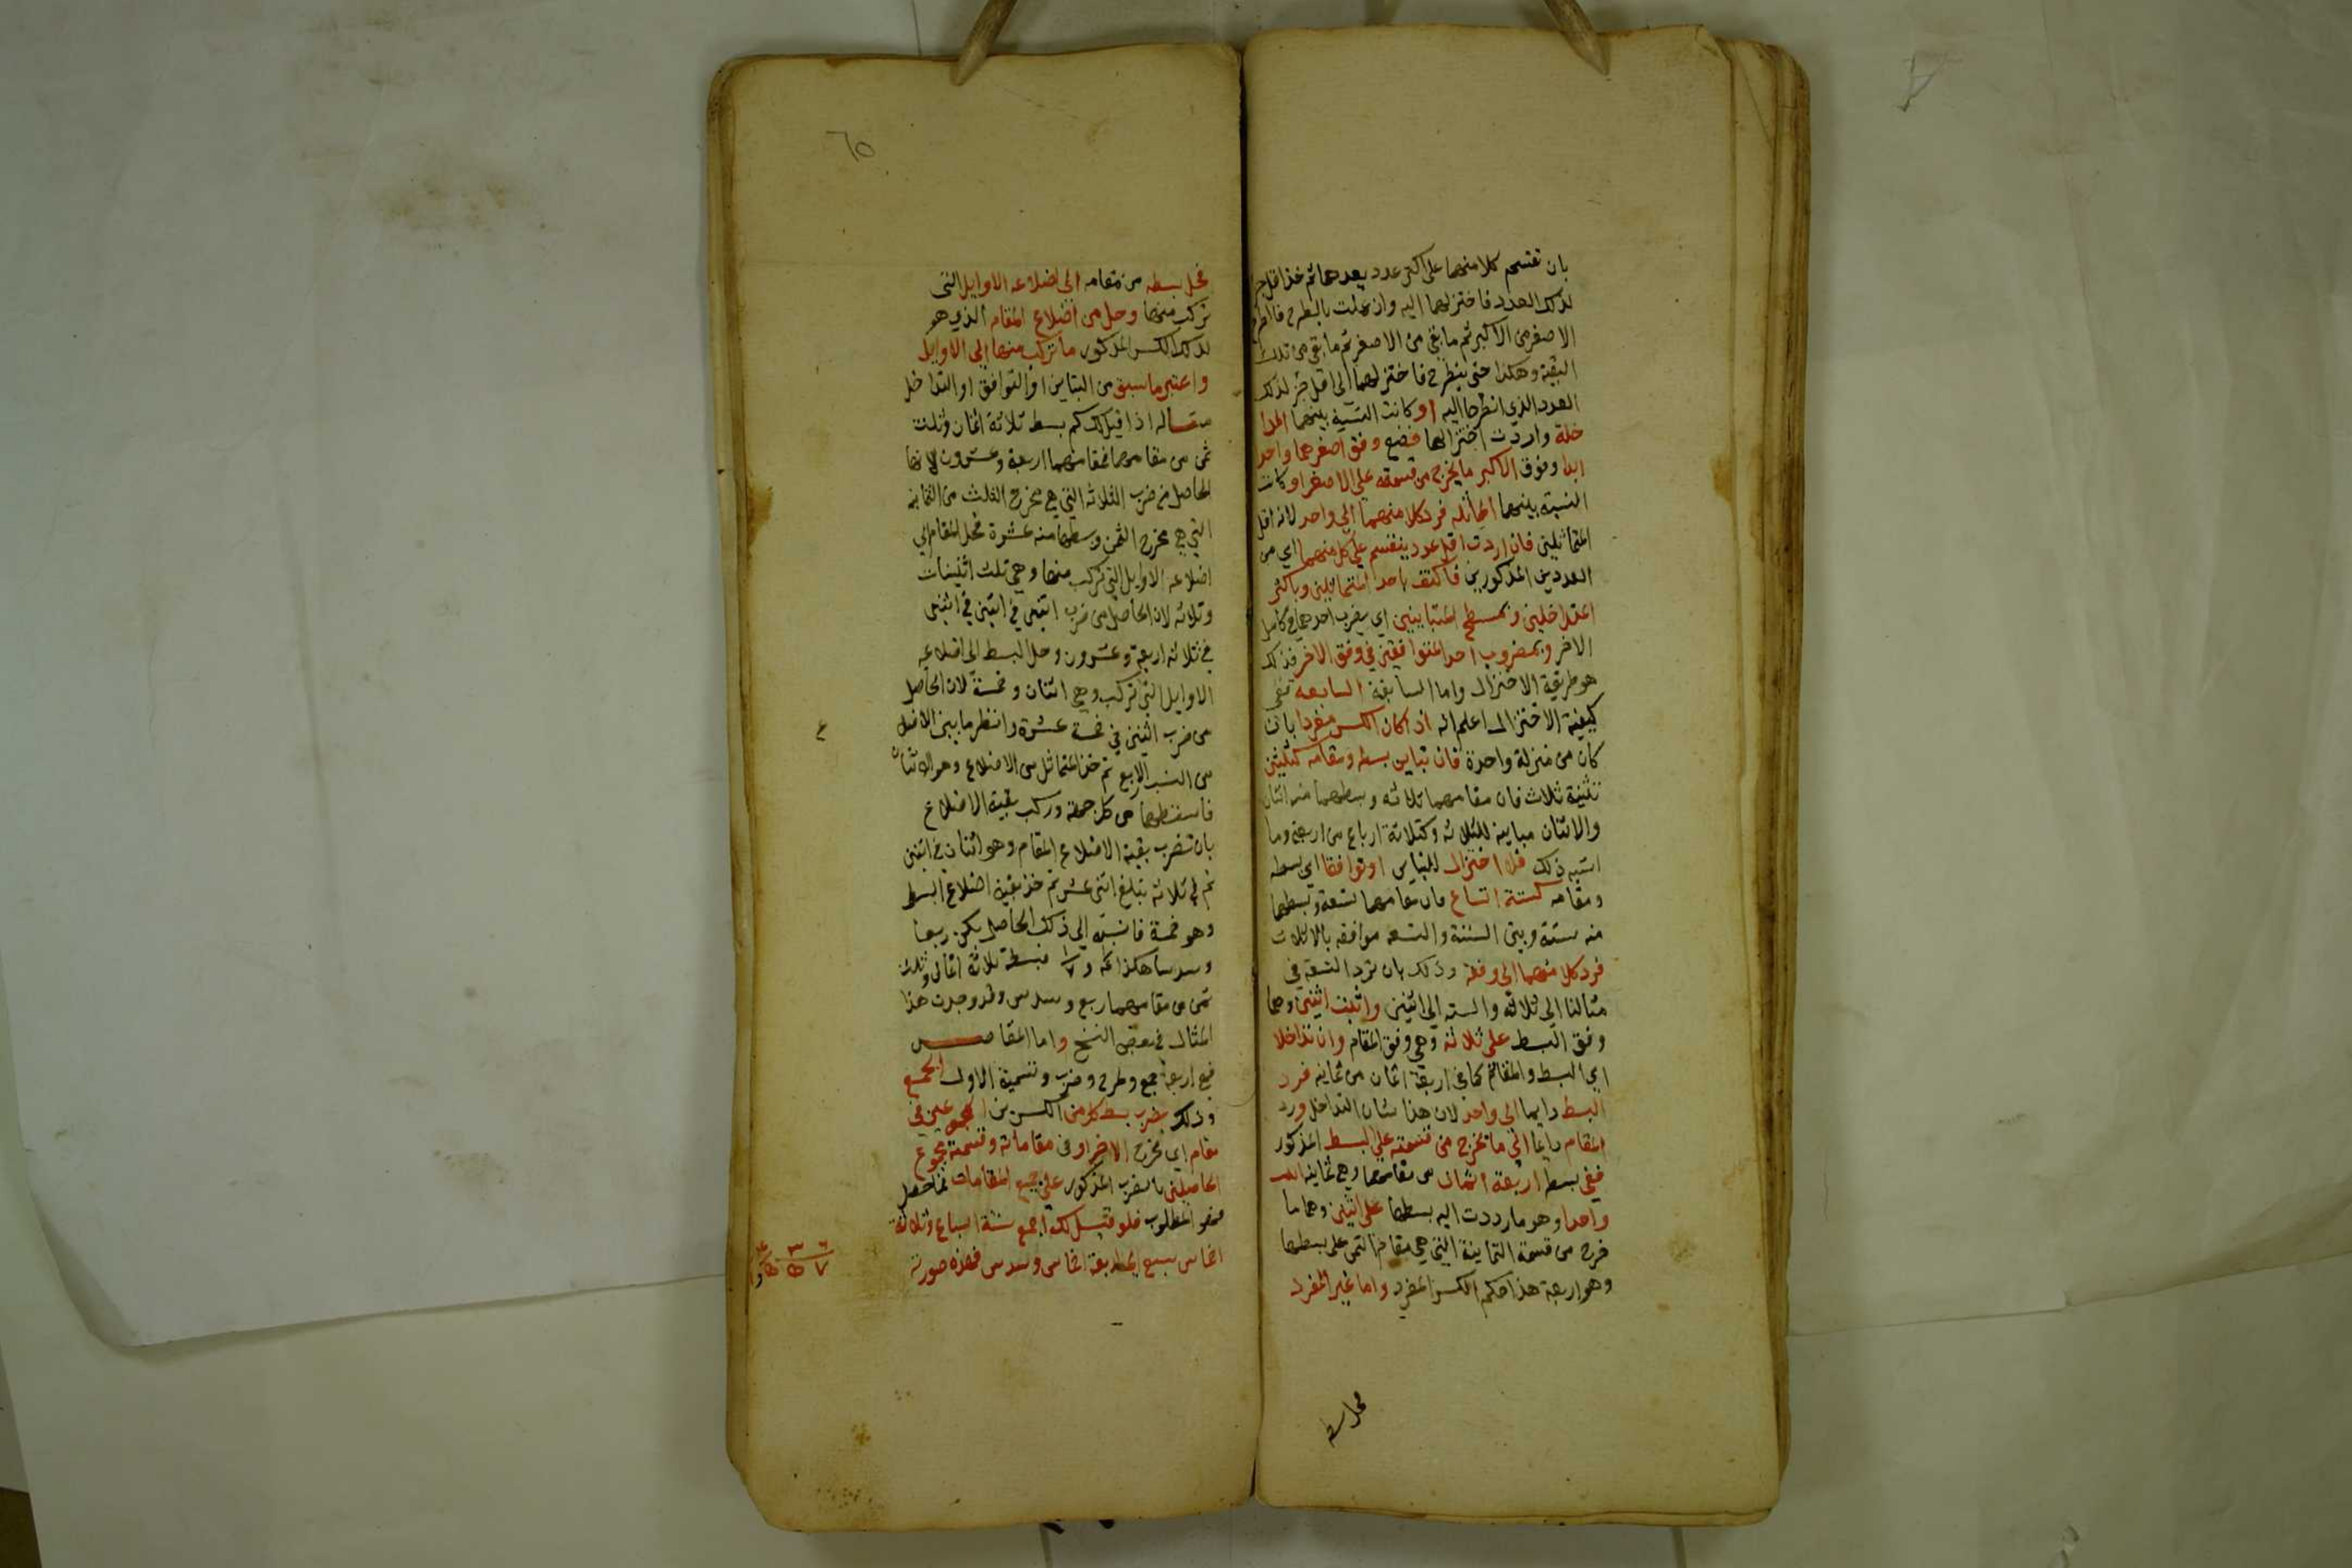 بان تقسم كلا منهما على اكبر عدد يعدهما ثم خذ اقل جزء
لذلك العدد فاختزلهما اليه وان عملت بالطرح فاطرح
الاصغر من الاكبر ثم ما بقي من الاصغر ثم ما بقي من تلك
البقية وهكذا حتى ينطرح فاختزلهما الى اقل جزء لذلك
العدد الذي انطرحا اليه او كانت النسبة بينهما المدا
خلة واردت اختزالها فضع وفق اصغرهما واحد
ابدا وفوق الاكبر ما يخرج من قسمته على الاصغر او كانت
النسبة بينهما المماثلة فرد كلا منهما الي واحد لانه اقل
المتماثلين فان اردت اقل عدد ينقسم على كل منهما اي من
العددين المذكورين فاكتف باحد المتماثلين وباكثر
المتداخلين وبمسطح المتباينين اي بضرب احدهما في كامل
الاخر وبمضروب احد المتوافقين في وفق الاخر فذلك
هو طريقة الاختزال واما السابقة السابعه ففي
كيفية الاختزال اعلم انه اذا كان الكسر مفردا بان
كان من منزلة واحدة فان تباين بسطه ومقامه كثلثين
تثنية ثلاث فان مقامهما ثلاثه وبسطهما منه اثنان
والاثنان مباينه للثلاثه وكثلاثة ارباع من اربعة وما
اشبه ذلك فلا اختزال للتباين او توافقا اي بسطه
ومقامه كستة اتساع فان مقامهما تسعة وبسطهما
منه ستة وبين الستة والتسعه موافقه بالاثلاث
فرد كلا منهما الى وفقه وذلك بان ترد التسعة في
مثالنا الى ثلاثه والسته الي اثنين واثبت اثنين وهما
وفق البسط على ثلاثه وهي وفق المقام وان تداخلا
اي البسط والمقام كما في اربعة اثمان من ثمانيه فرد
البسط دايما الى واحد لان هذا شان التداخل ورد
المقام دايما الى ما يخرج من قسمته علي البسط المذكور
ففي بسط اربعة اثمان من مقامهما وهي ثمانيه
واحدا وهو ما رددت اليه بسطها على اثنين وهما ما
خرج من قسمة الثمانية التي هي مقام الثمن على بسطها
وهو اربعة هذا حكم الكسر المفرد واما غير المفرد
فحل بسطه
٦٥
فحل بسطه من مقامه الى اضلاعه الاوايل التي
تركب منها وحل من اضلاع المقام الذي هو
لذلك الكسر المذكور ما تركب منها الي الاوايل
واعتبر ما سبق من التباين او التوافق او التداخل
مثاله اذا قيل لك كم بسط ثلاثة اثمان وثلث
ثمن من مقامهما فمقامهما اربعة وعشرون لانها
الحاصل من ضرب الثلاثه التي هي مخرج الثلث من الثمانيه
التي هي مخرج الثمن وبسطهما منه عشرة فحل المقام الي
اضلاعه الاوايل التي تركب منها وهي ثلث اثنينات
وثلاثه لان الحاصل من ضرب اثنين في اثنين في اثنين
في ثلاثه اربعة وعشرون وحل البسط الي اضلاعه
الاوايل التي تركب وهي اثنان وخمسة لان الحاصل
من ضرب اثنين في خمسة عشرة وانظر ما بين الاضلاع
من النسب الاربع ثم خذ المتماثل من الاضلاع وهو الاثنان
فاسقطهما من كل جهة وركب بقية الاضلاع
بان تضرب بقية الاضلاع المقام وهو اثنان في اثنين
ثم في ثلاثه تبلغ اثنى عشر ثم خذ بقية اضلاع البسط
وهو خمسة فانسبه الي ذلك الحاصل يكن ربعا
وسدسا هكذا فبسطه ثلاثة اثمان وثلث
ثمن من مقامهما ربع وسدس وقد وجدت هذا
المثال في بعض النسخ واما المقاصــــد
فهي اربعة جمع وطرح وضرب وتسمية الاول الجمع
وذلك بضرب بسط كل من الكسرين المجموعين في
مقام اي مخرج الاخر او في مقاماته وقسمة مجموع
الحاصلين بالضرب المذكور على جميع المقامات فما حصل
فهو المطلوب فلو قيل لك اجمع ستة اسباع وثلاثة
اخماس سبع الى اربعة اخماس وسدس فهذه صورته